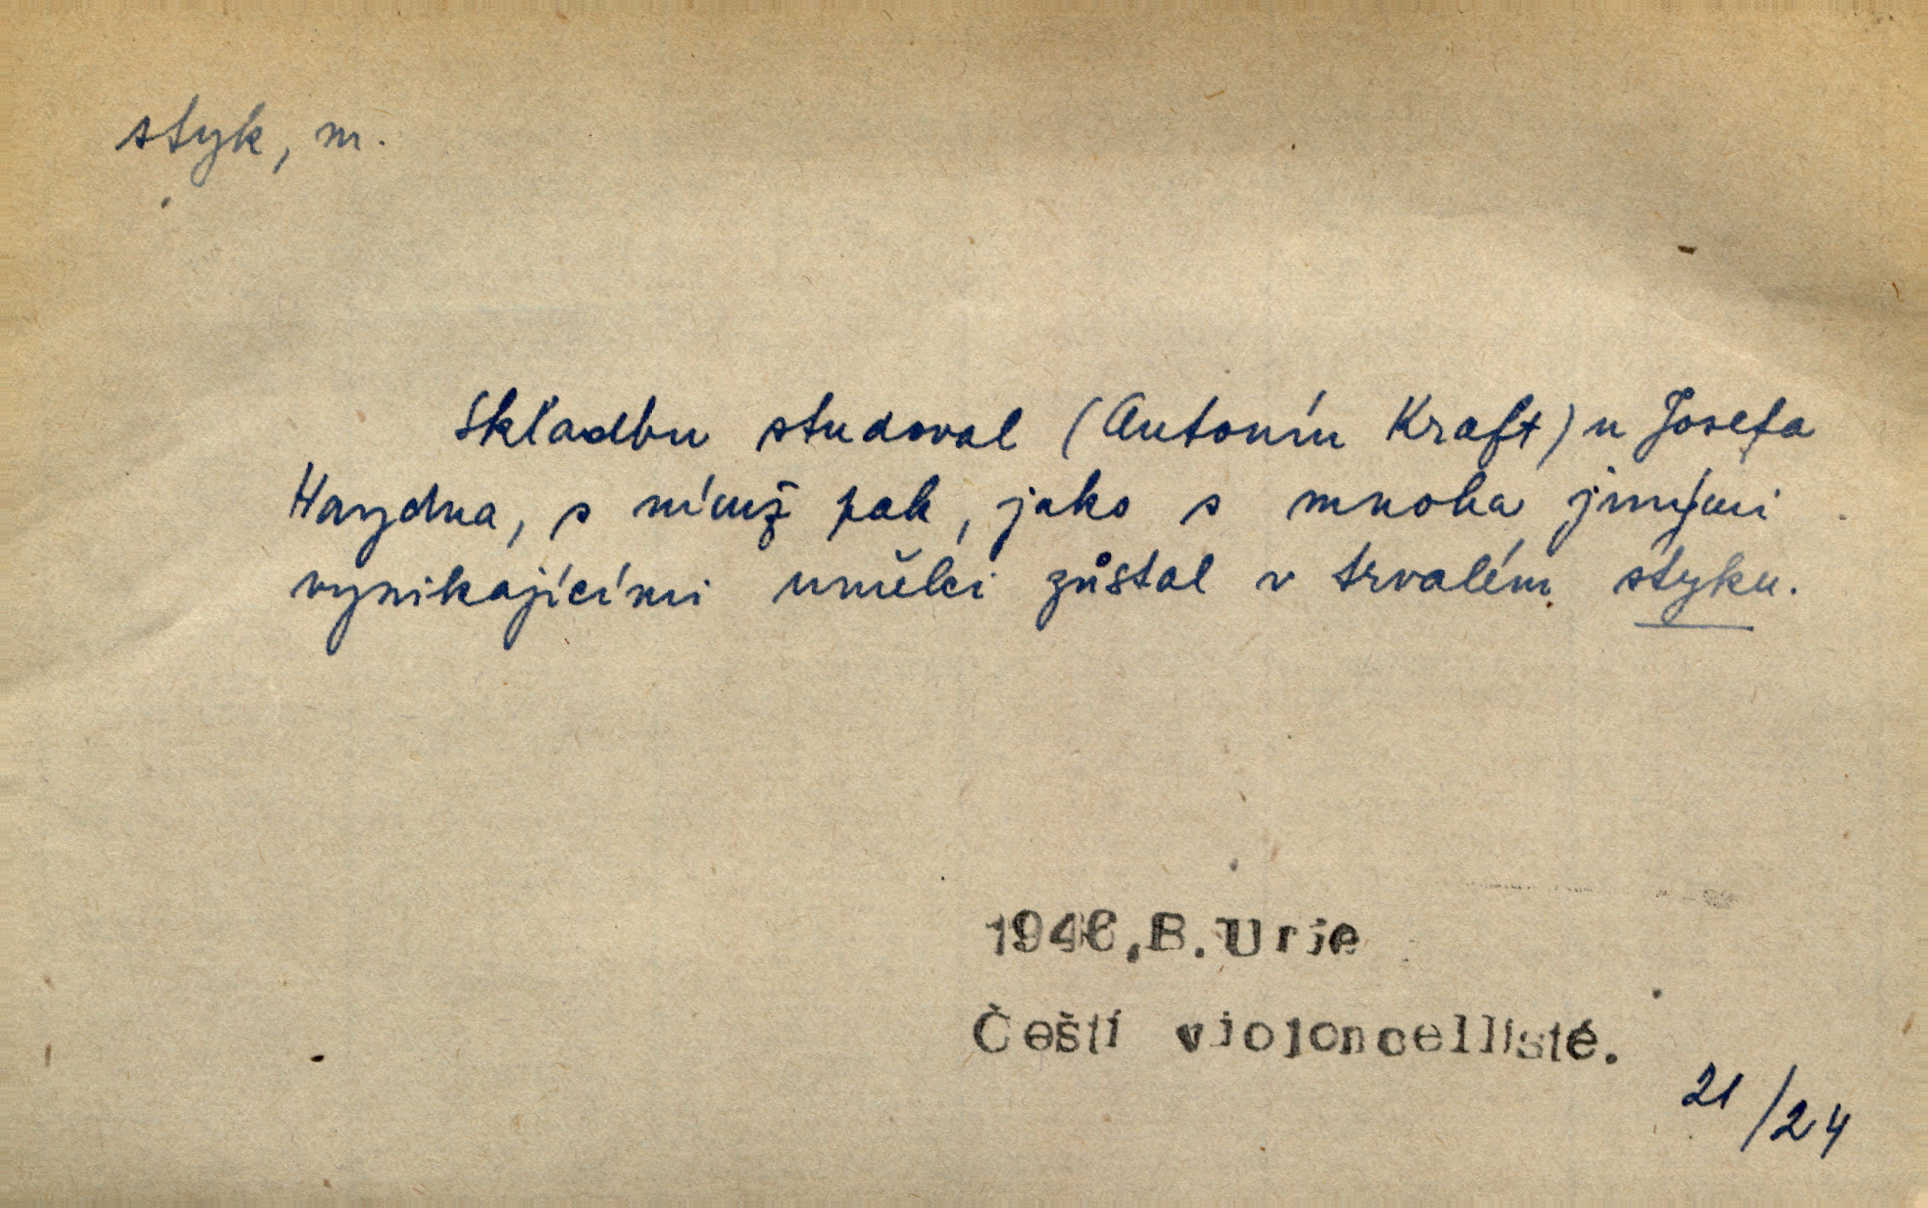 styk, m.
Skladbu studoval (Antonín Kraft) u Josefa
Haydna, s nímž pak, jako s mnoha jinými
vynikajícími umělci zůstal v trvalém styku.
1946, B. Urie
Čeští violoncellisté.
21/24